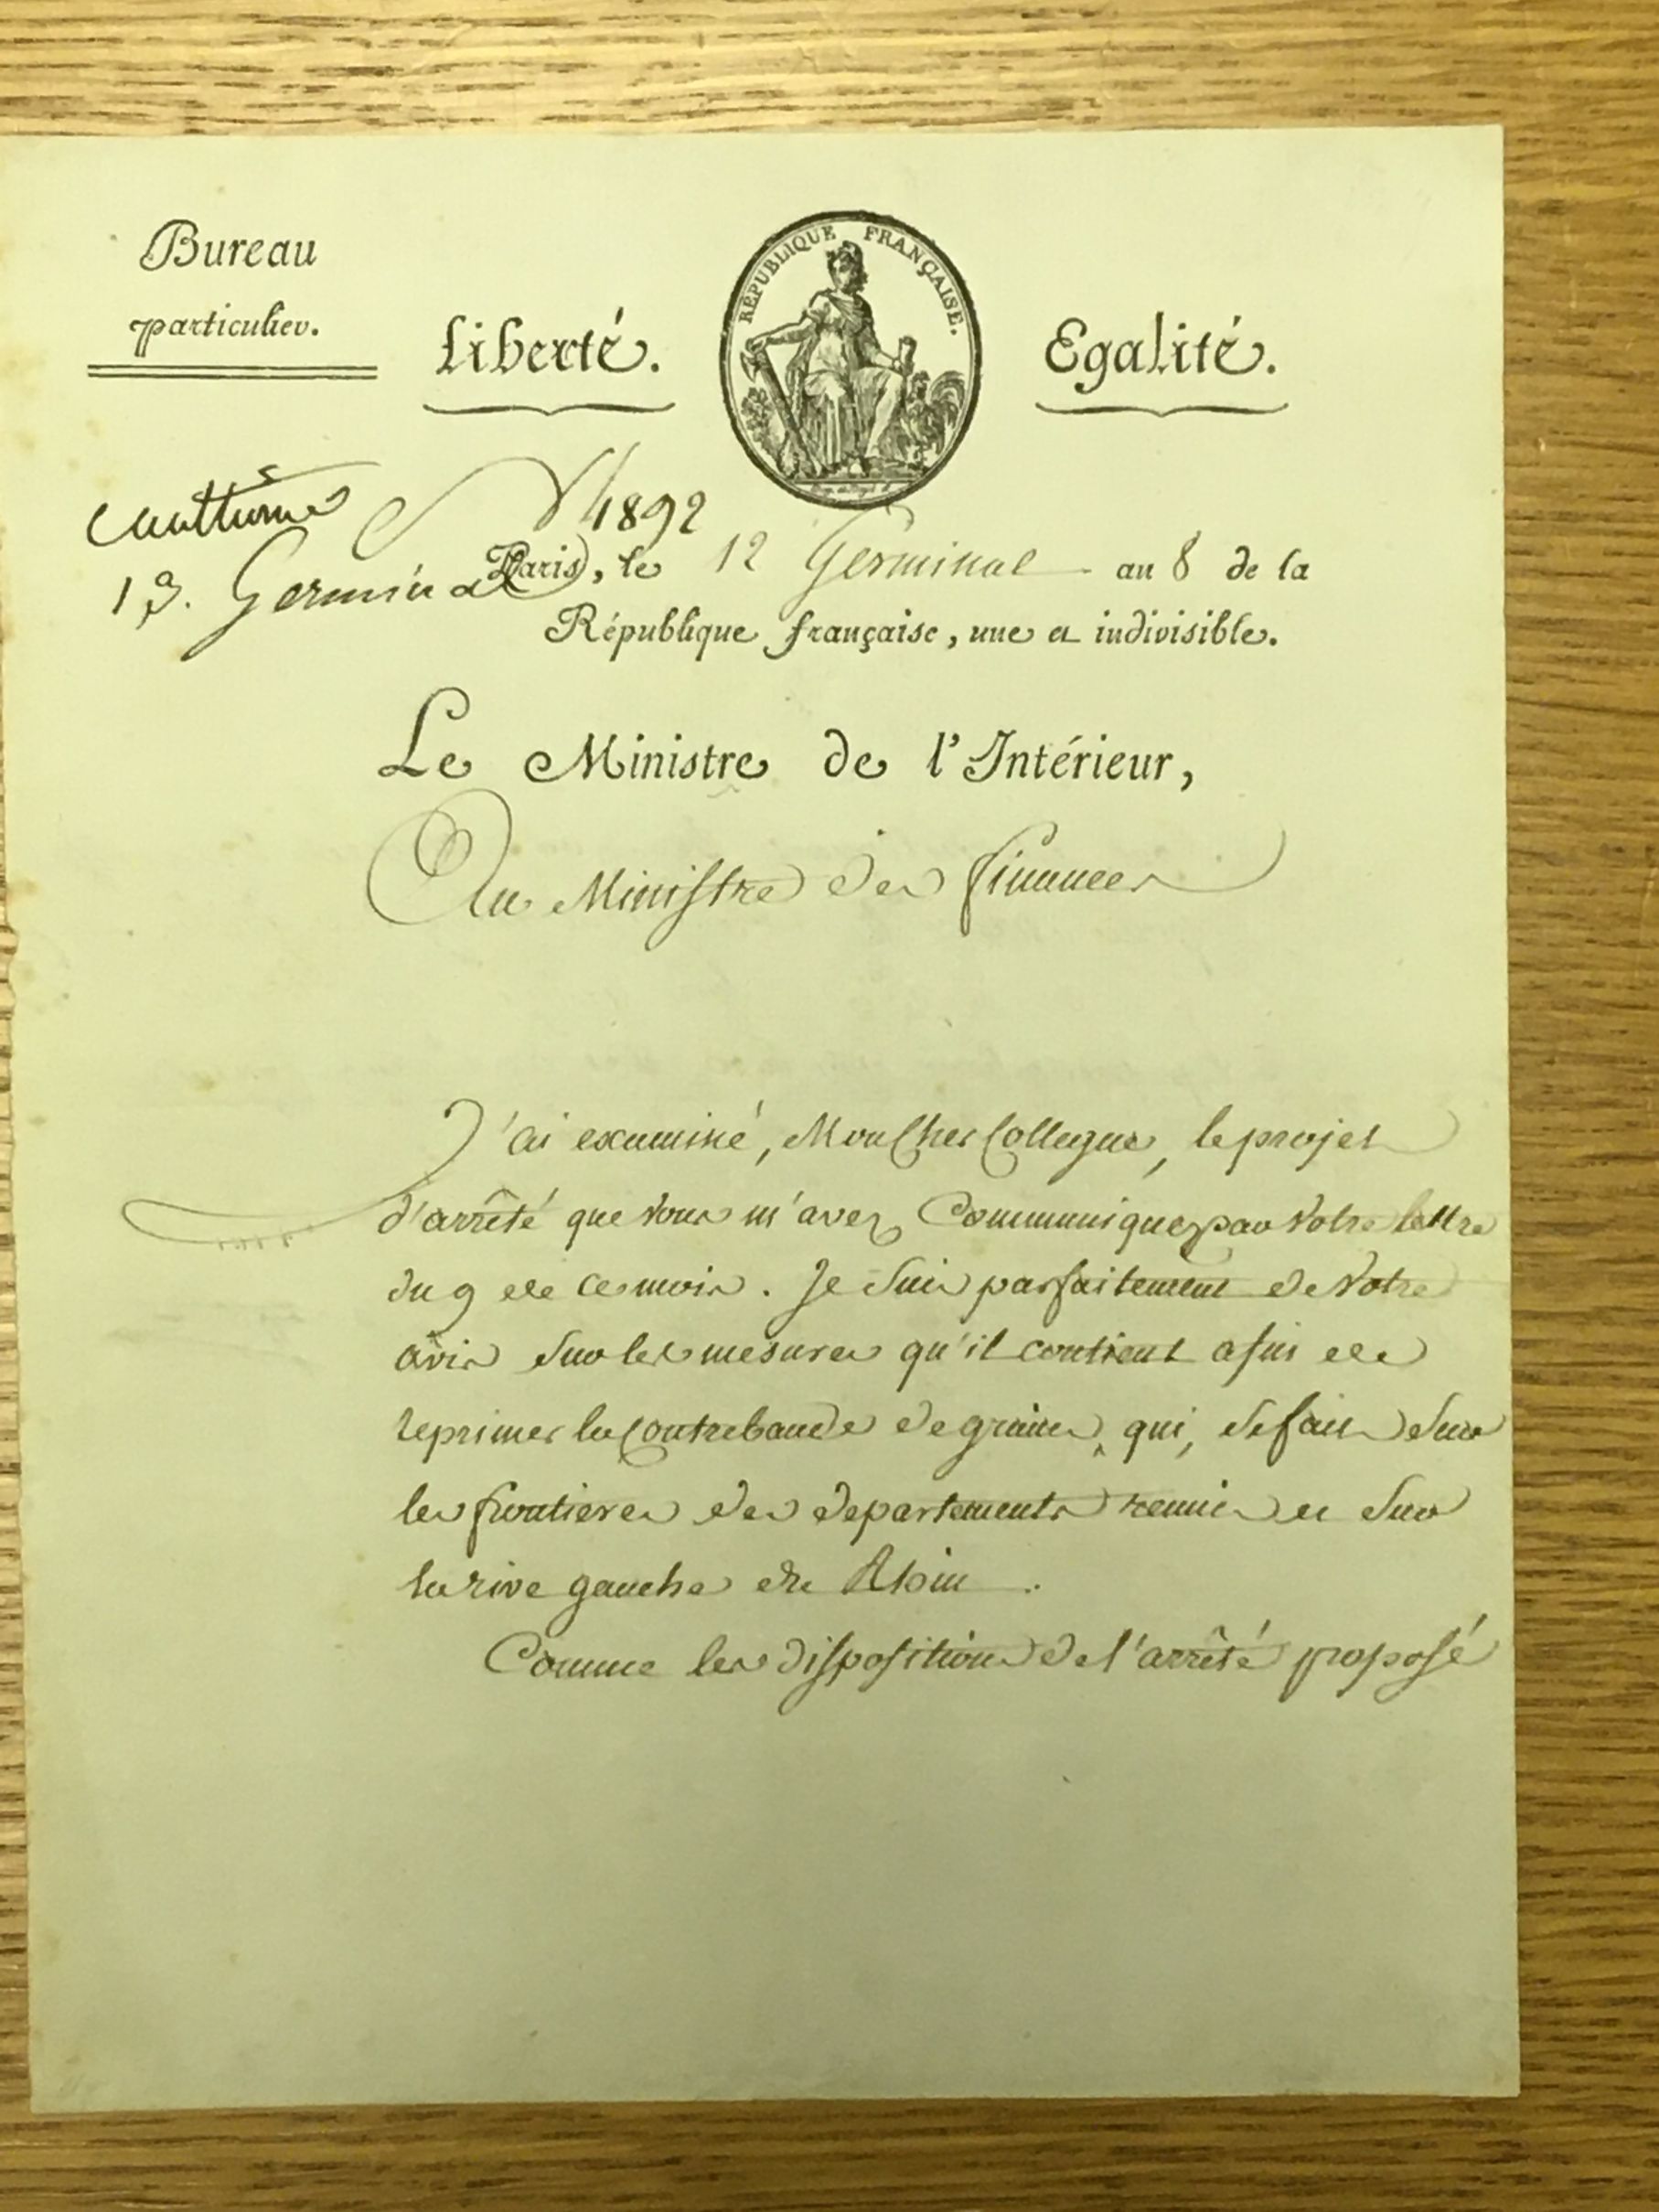 Bureau
particulier.
Liberté.
RÉPUBLIQUE FRANÇAISE.
Egalité.
4892
13. Germinal
Paris, le 12 Germinal an 8 de la
République française, une et indivisible.
Le Ministre de l'Intérieur,
Au Ministre des finances
J'ai examiné, Mon Cher Collegue, le projet
d'arrêté que vous m'avez Communiquez par votre lettre
du 9 de ce mois. Je suis parfaitement de votre
avis sur les mesures qu'il contient afin de
reprimer la Contrebande de grains, qui, se fait sur
les frontieres des departements reunis et sur
la rive gauche du Rhin.
Comme les dispositions de l'arrêté proposé